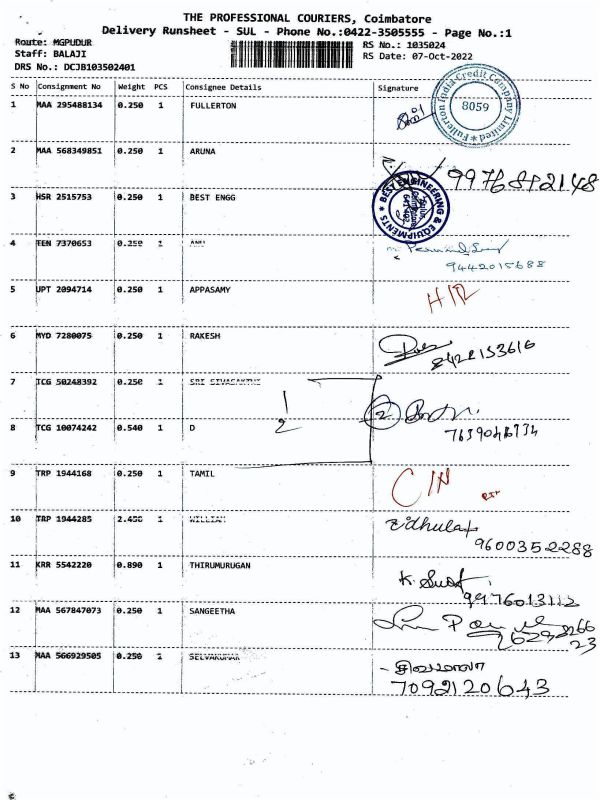 THE PROFESSIONAL COURIERS, Coimbatore
Delivery Runsheet - SUL - Phone No.:0422-3505555 - Page No.:1
Route: MGPUDUR
RS No.: 1035024
Staff: BALAJI
RS Date: 07-Oct-2022
DRS No.: DCJB103502401
S No Consignment No Weight PCS Consignee Details Signature
1 MAA 295488134 0.250 1 FULLERTON
Fullerton India Credit Company Limited
8059
2 MAA 568349851 0.250 1 ARUNA
3 HSR 2515753 0.250 1 BEST ENGG
BEST ENGINEERING & EQUIPMENTS
4 EEN 7370653 0.250 1
9442015688
5 UPT 2094714 0.250 1 APPASAMY
6 MYD 7280075 0.250 1 RAKESH
8428153616
7 TCG 50248392 0.250 1 SRI SIVASAKTHI
1
2
2
8 TCG 10074242 0.540 1 D
9 TRP 1944168 0.250 1 TAMIL
10 TRP 1944285 2.450 1 WILLIAM
9600352288
11 KRR 5542220 0.890 1 THIRUMURUGAN
9976013112
12 MAA 567847073 0.250 1 SANGEETHA
13 MAA 566929505 0.250 1 SELVAKUMAR
7092120643